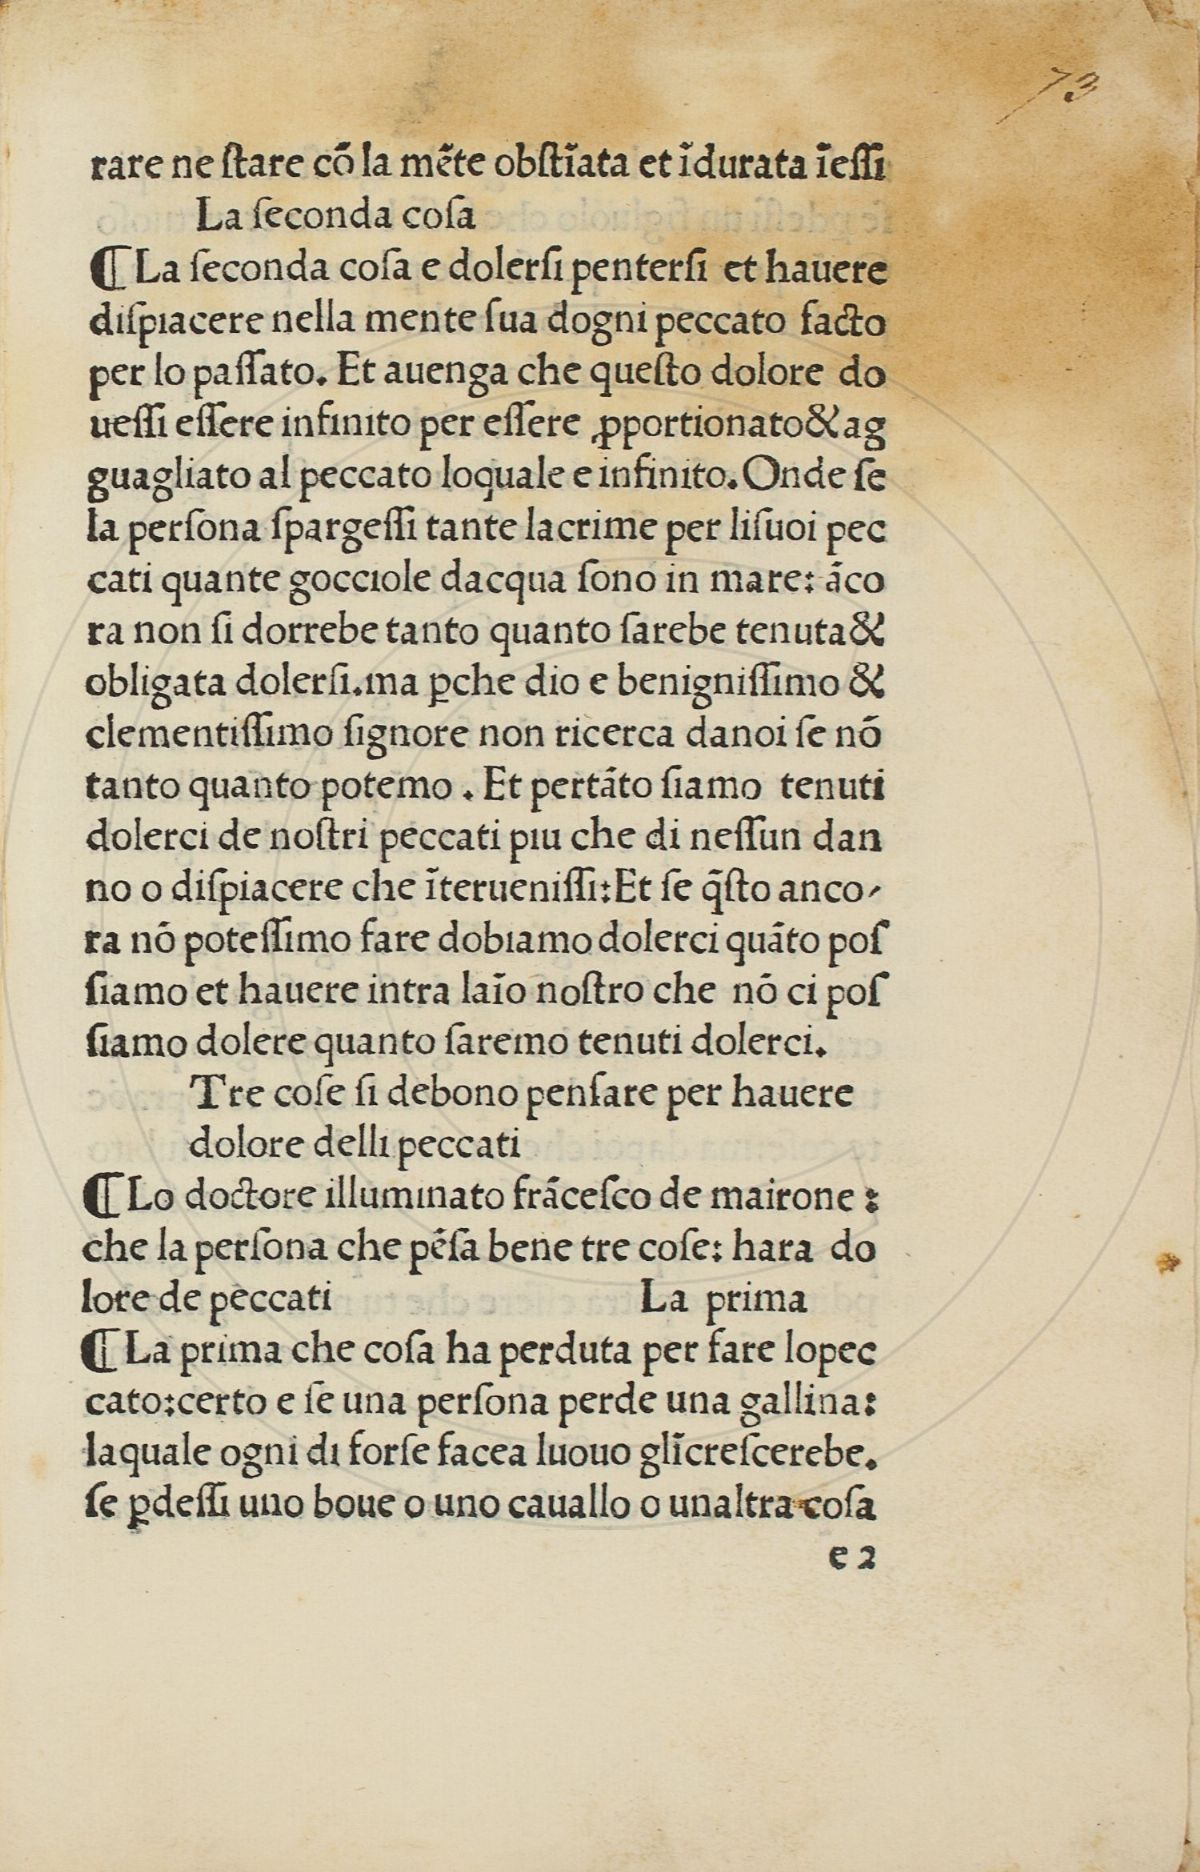 73
rare ne ſtare cō la mēte obſtīata et īdurata īeſſi
La ſeconda coſa
¶ La ſeconda coſa e dolerſi penterſi et hauere
diſpiacere nella mente ſua dogni peccato facto
per lo paſſato. Et auenga che queſto dolore do
ueſſi eſſere infinito per eſſere ꝓportionato&ag
guagliato al peccato loquale e infinito. Onde ſe
la perſona ſpargeſſi tante lacrime per liſuoi pec
cati quante gocciole dacqua ſono in mare: āco
ra non ſi dorrebe tanto quanto ſarebe tenuta&
obligata dolerſi. ma ꝑche dio e benigniſſimo &
clementiſſimo ſignore non ricerca danoi ſe nō
tanto quanto potemo . Et pertāto ſiamo tenuti
dolerci de noſtri peccati piu che di neſſun dan
no o diſpiacere che īterueniſſi: Et ſe q̄ſto anco-
ra nō poteſſimo fare dobiamo dolerci quāto poſ
ſiamo et hauere intra laīo noſtro che nō ci poſ
ſiamo dolere quanto ſaremo tenuti dolerci.
Tre coſe ſi debono penſare per hauere
dolore delli peccati
¶ Lo doctore illuminato frāceſco de mairone :
che la perſona che pēſa bene tre coſe: hara do
lore de peccati La prima
¶ La prima che coſa ha perduta per fare lopec
cato: certo e ſe una perſona perde una gallina:
laquale ogni di forſe facea luouo glīcreſcerebe.
ſe ꝑdeſſi uno boue o uno cauallo o unaltra coſa
e 2